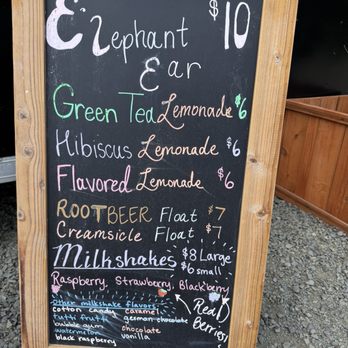 Elephant $10
Ear
Green Tea Lemonade $6
Hibiscus Lemonade $6
Flavored Lemonade $6
ROOTBEER Float $7
Creamsicle Float $7
Milkshakes $8 Large
$6 small
Raspberry, Strawberry, Black'berry
Other milkshake flavors
cotton candy caramel
tutti frutti german chocolate
bubble gum chocolate
watermelon vanilla
black raspberry
Real Berries!